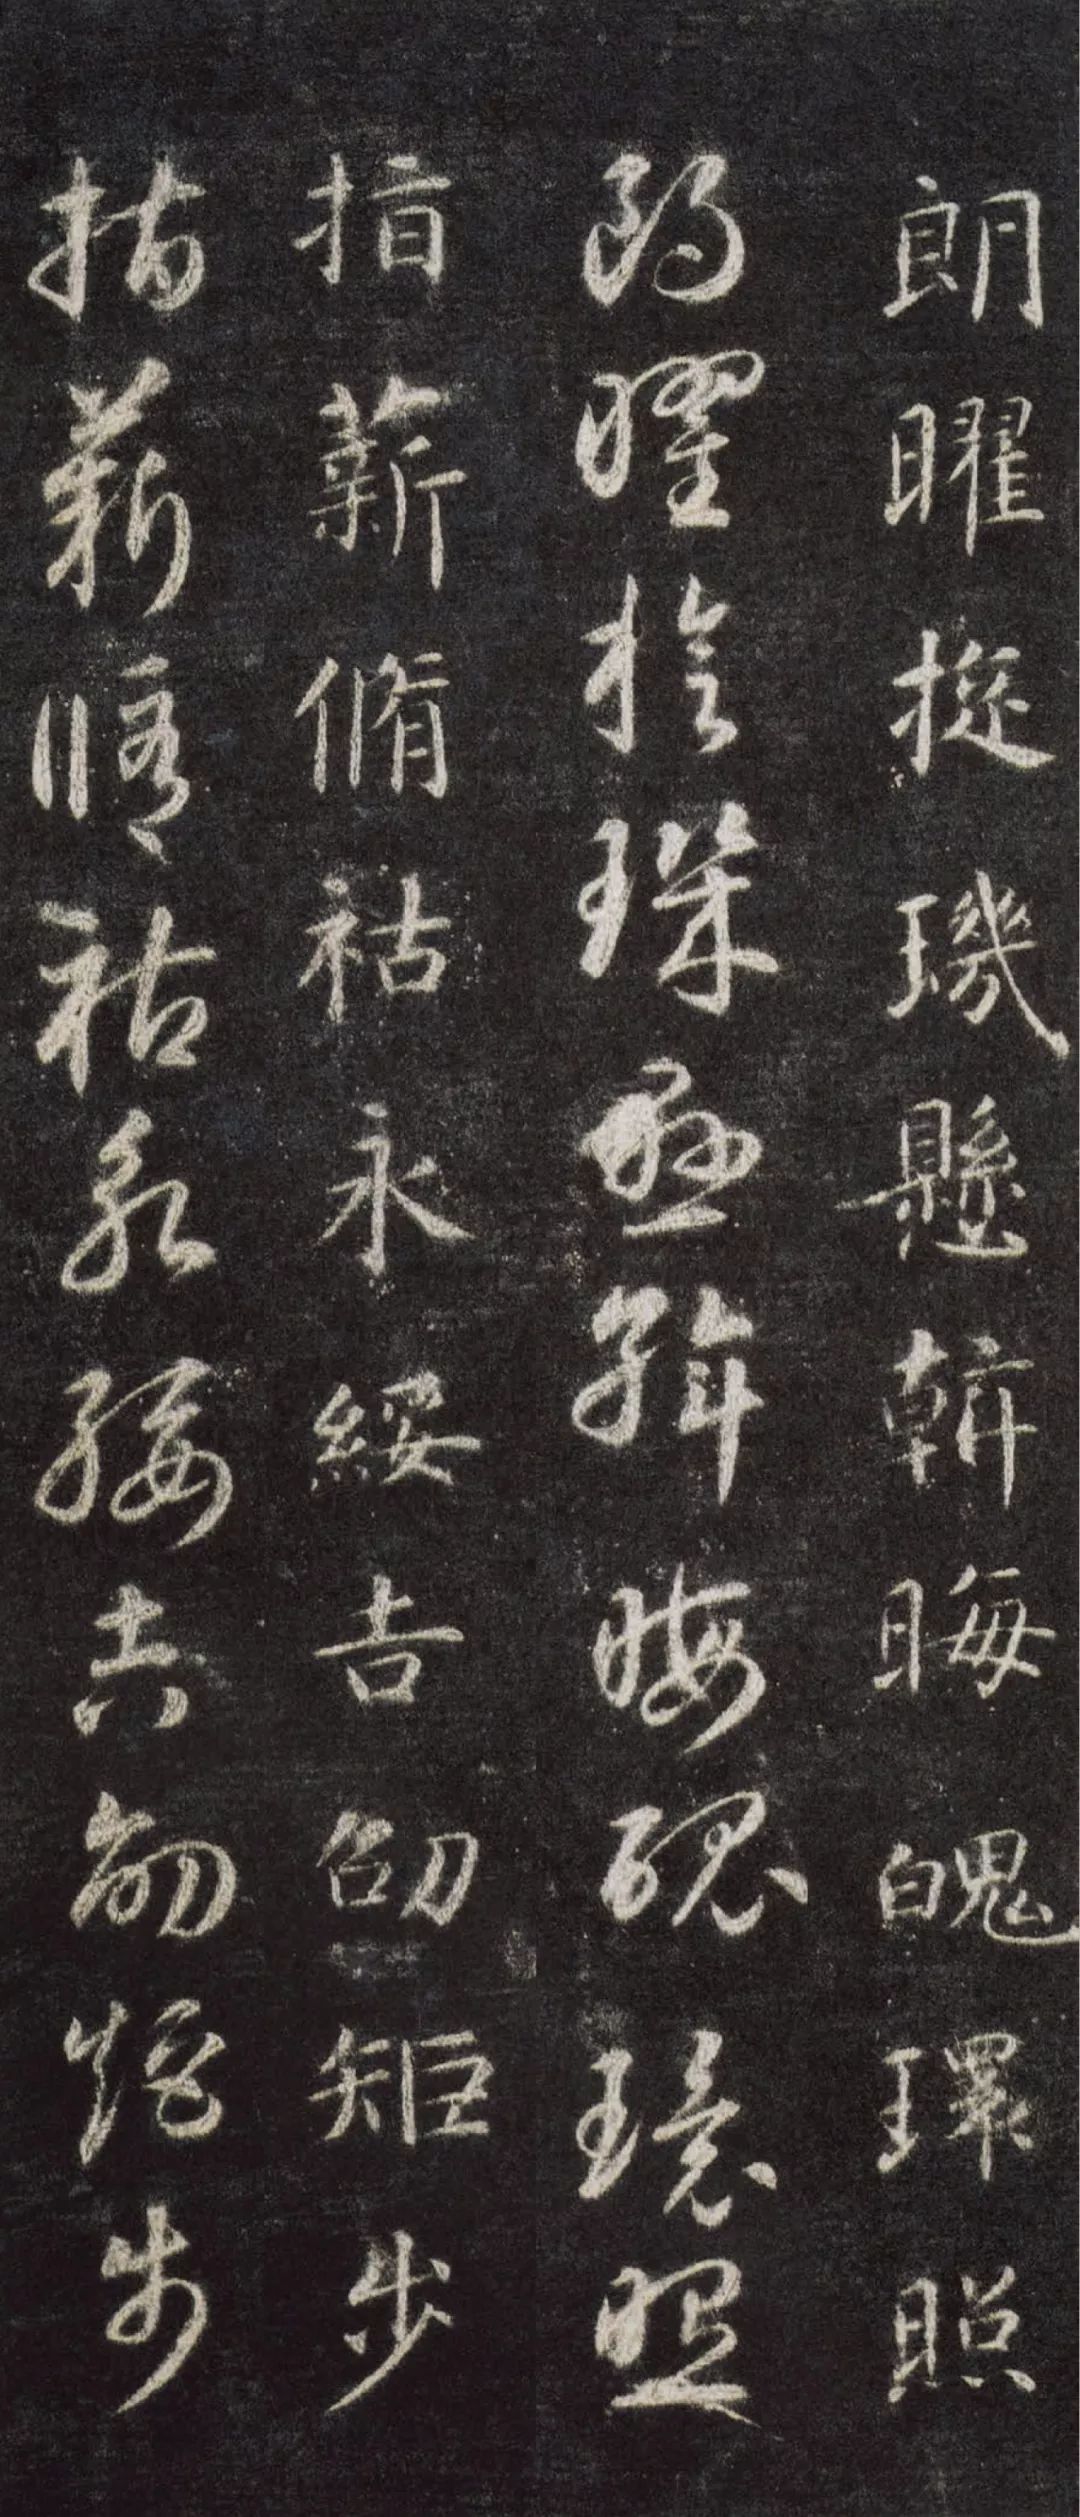 朗曜璇璣懸斡晦魄環照
朗曜璇璣懸斡晦魄環照
指薪脩祜永綏吉劭矩步
指薪脩祜永綏吉劭矩步